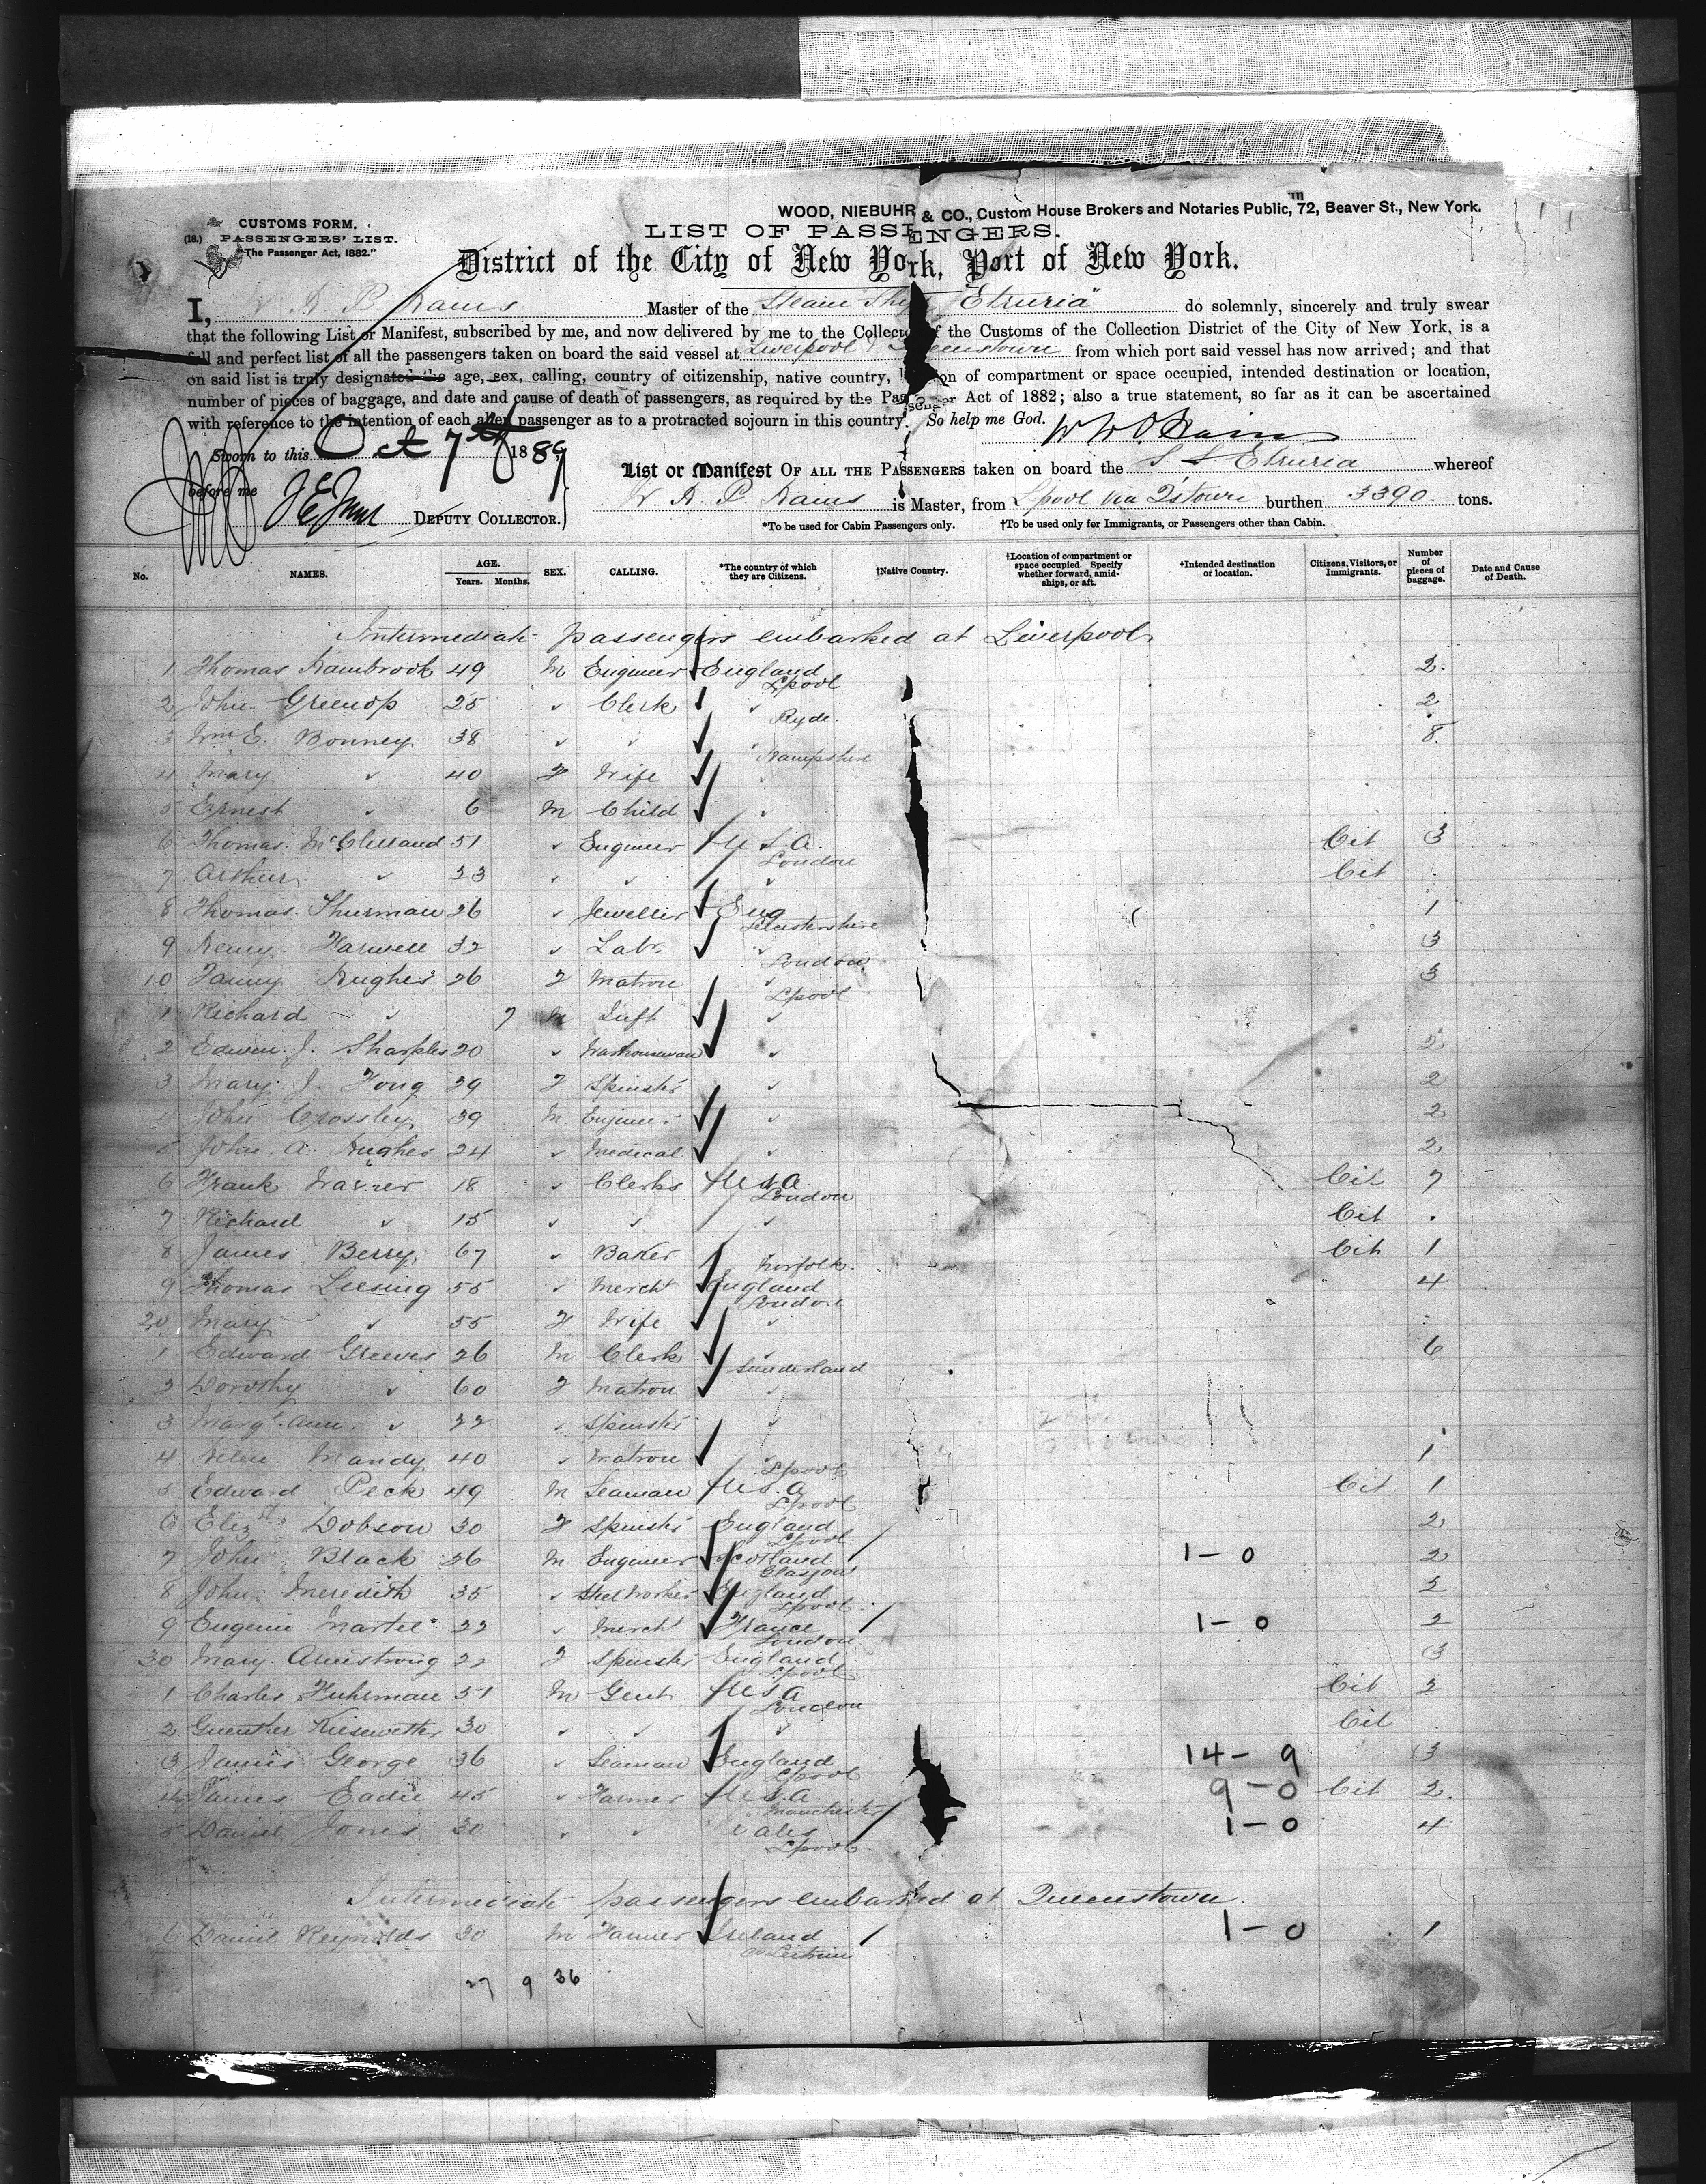 WOOD, NIEBUHR & CO., Custom House Brokers and Notaries Public, 72, Beaver St., New York.
CUSTOMS FORM.
(18.) PASSENGERS' LIST.
"The Passenger Act, 1882."
LIST OF PASSENGERS.
District of the City of New York, Port of New York.
I, W H P Hains Master of the Steam Ship "Etruria" do solemnly, sincerely and truly swear
that the following List or Manifest, subscribed by me, and now delivered by me to the Collector of the Customs of the Collection District of the City of New York, is a
full and perfect list of all the passengers taken on board the said vessel at Liverpool & Queenstown from which port said vessel has now arrived; and that
on said list is truly designated the age, sex, calling, country of citizenship, native country, location of compartment or space occupied, intended destination or location,
number of pieces of baggage, and date and cause of death of passengers, as required by the Passenger Act of 1882; also a true statement, so far as it can be ascertained
with reference to the intention of each alien passenger as to a protracted sojourn in this country. So help me God.
Sworn to this Oct 7th 1889
before me
DEPUTY COLLECTOR.
List or Manifest OF ALL THE PASSENGERS taken on board the S S Etruria whereof
W. H. P. Hains is Master, from Lpool via Q'stown burthen 3390 tons.
*To be used for Cabin Passengers only. †To be used only for Immigrants, or Passengers other than Cabin.
No. NAMES. AGE. Years. Months. SEX. CALLING. *The country of which they are Citizens. †Native Country. †Location of compartment or space occupied. Specify whether forward, amidships, or aft. †Intended destination or location. Citizens, Visitors, or Immigrants. Number of pieces of baggage. Date and Cause of Death.
Intermediate passengers embarked at Liverpool
1 Thomas Hambrook 49 M Engineer England 2
Lpool
2 John Greenop 25 " Clerk " 2
Ryde
3 Wm E. Bonney 38 " " " 8
Hampshire
4 Mary " 40 F Wife "
5 Ernest " 6 M Child "
6 Thomas McClelland 51 " Engineer U.S.A. Cit 3
London
7 Arthur " 23 " " " Cit
8 Thomas Thurman 26 " Jeweller Eng 1
Leicestershire
9 Henry Harwell 32 " Labr. " 3
London
10 Fanny Hughes 26 F Matron " 3
Lpool
1 Richard " 7 M Inft "
2 Edwin J. Sharples 20 " Warehouseman " 2
3 Mary J. 29 F Spinstr " 2
4 John Crossley 39 M Engineer " 2
5 John A. Hughes 24 " Medical " 2
6 Frank Warner 18 " Clerks U.S.A Cit 7
London
7 Richard " 15 " " " Cit
8 James Berry 67 " Baker Cit 1
Norfolk
9 Thomas Leesing 55 " Mercht England 4
London
20 Mary " 55 F Wife "
1 Edward Greeves 26 M Clerk " 6
Sunderland
2 Dorothy " 60 F Matron "
3 Margt Ann " 22 " Spinster "
4 Helen Mandy 40 " Matron " 1
Lpool
5 Edward Peck 49 M Seaman U.S.A Cit 1
Lpool
6 Elizth Dobson 30 F Spinstr England 2
Lpool
7 John Black 26 M Engineer Scotland 1-0 2
Glasgow
8 John Meredith 35 " Steel Worker England 2
Lpool
9 Eugenie Martel 22 " Mercht France 1-0 2
London
30 Mary Armstrong 22 F Spinster England 3
Lpool
1 Charles Fuhrman 51 M Gent U.S.A Cit 2
London
2 Guenther Kiesewetter 30 " " " Cit
3 James George 36 " Seaman England 14-9 3
Lpool
4 James Eadie 45 " Farmer U.S.A 9-0 Cit 2
Manchester
5 Daniel Jones 30 " " Wales 1-0 4
Lpool
Intermediate passengers embarked at Queenstown.
6 Daniel Reynolds 30 M Farmer Ireland 1-0 1
Co Leitrim
27 9 36